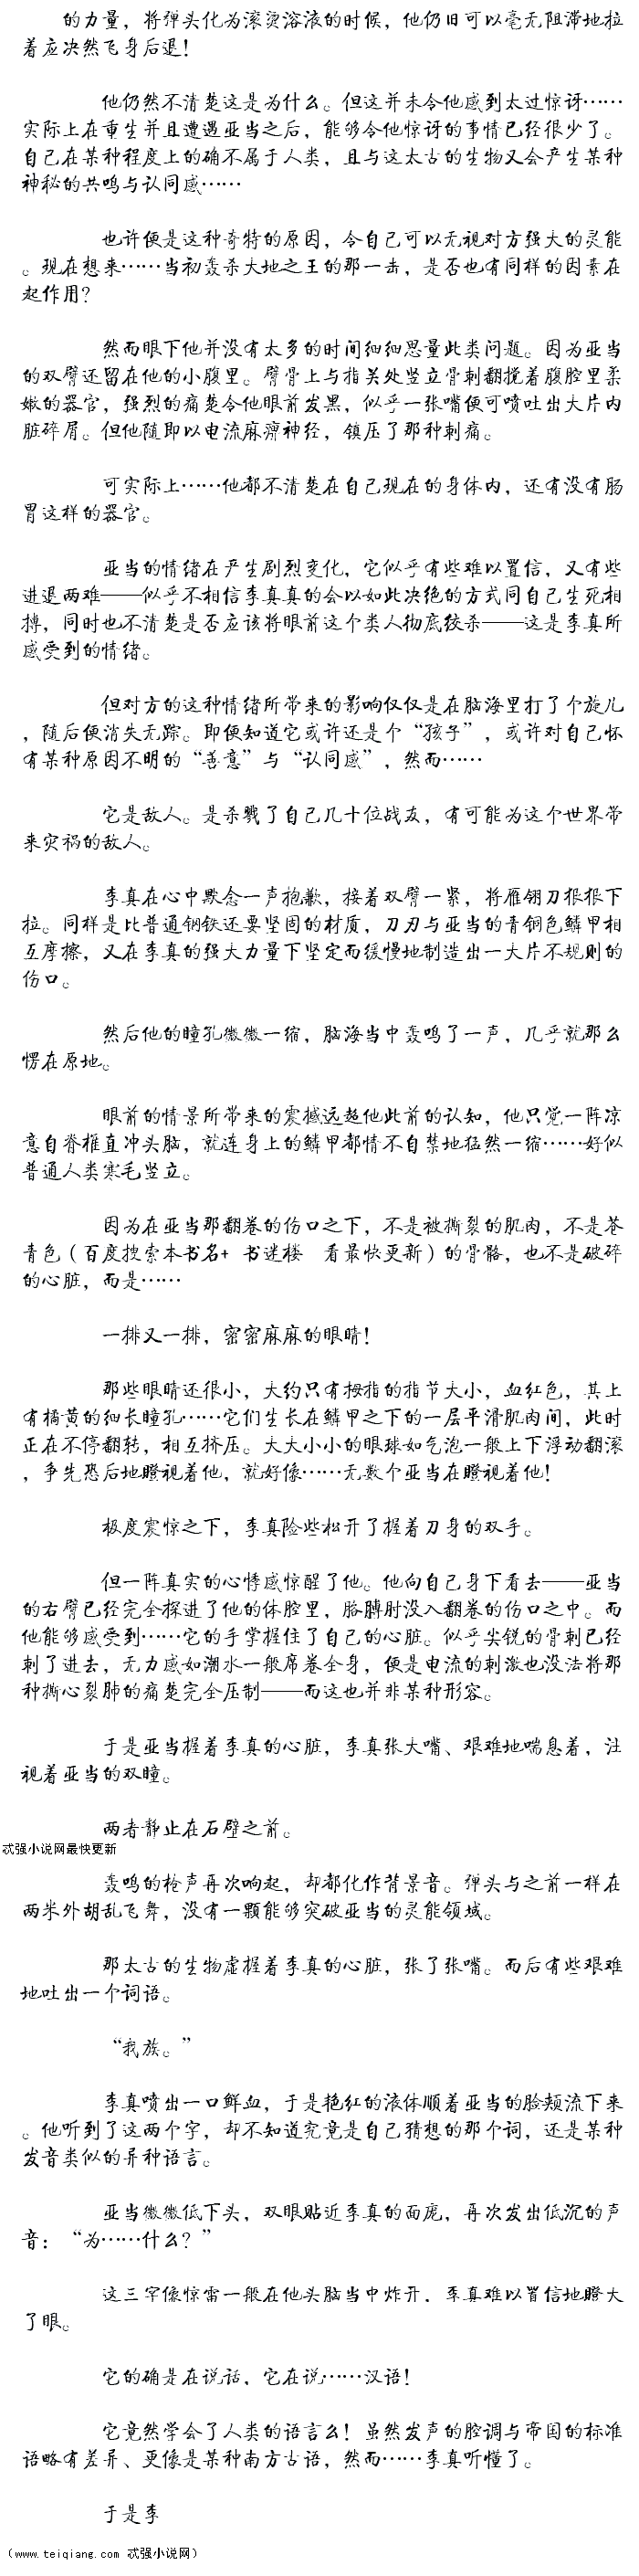 的力量，将弹头化为滚烫溶液的时候，他仍旧可以毫无阻滞地拉
着应决然飞身后退！
他仍然不清楚这是为什么。但这并未令他感到太过惊讶……
实际上在重生并且遭遇亚当之后，能够令他惊讶的事情已经很少了。
自己在某种程度上的确不属于人类，且与这太古的生物又会产生某种
神秘的共鸣与认同感……
也许便是这种奇特的原因，令自己可以无视对方强大的灵能
。现在想来……当初轰杀大地之王的那一击，是否也有同样的因素在
起作用？
然而眼下他并没有太多的时间细细思量此类问题。因为亚当
的双臂还留在他的小腹里。臂骨上与指关处竖立骨刺翻搅着腹腔里柔
嫩的器官，强烈的痛楚令他眼前发黑，似乎一张嘴便可喷吐出大片内
脏碎屑。但他随即以电流麻痹神经，镇压了那种刺痛。
可实际上……他都不清楚在自己现在的身体内，还有没有肠
胃这样的器官。
亚当的情绪在产生剧烈变化，它似乎有些难以置信，又有些
进退两难——似乎不相信李真真的会以如此决绝的方式同自己生死相
搏，同时也不清楚是否应该将眼前这个类人彻底绞杀——这是李真所
感受到的情绪。
但对方的这种情绪所带来的影响仅仅是在脑海里打了个旋儿
，随后便消失无踪。即便知道它或许还是个“孩子”，或许对自己怀
有某种原因不明的“善意”与“认同感”，然而……
它是敌人。是杀戮了自己几十位战友，有可能为这个世界带
来灾祸的敌人。
李真在心中默念一声抱歉，接着双臂一紧，将雁翎刀狠狠下
拉。同样是比普通钢铁还要坚固的材质，刀刃与亚当的青铜色鳞甲相
互摩擦，又在李真的强大力量下坚定而缓慢地制造出一大片不规则的
伤口。
然后他的瞳孔微微一缩，脑海当中轰鸣了一声，几乎就那么
愣在原地。
眼前的情景所带来的震撼远超他此前的认知，他只觉一阵凉
意自脊椎直冲头脑，就连身上的鳞甲都情不自禁地猛然一缩……好似
普通人类寒毛竖立。
因为在亚当那翻卷的伤口之下，不是被撕裂的肌肉，不是苍
青色（百度搜索本书名+ 书迷楼　看最快更新）的骨骼，也不是破碎
的心脏，而是……
一排又一排，密密麻麻的眼睛！
那些眼睛还很小，大约只有拇指的指节大小，血红色，其上
有橘黄的细长瞳孔……它们生长在鳞甲之下的一层平滑肌肉间，此时
正在不停翻转，相互挤压。大大小小的眼球如气泡一般上下浮动翻滚
，争先恐后地瞪视着他，就好像……无数个亚当在瞪视着他！
极度震惊之下，李真险些松开了握着刀身的双手。
但一阵真实的心悸感惊醒了他。他向自己身下看去——亚当
的右臂已经完全探进了他的体腔里，胳膊肘没入翻卷的伤口之中。而
他能够感受到……它的手掌握住了自己的心脏。似乎尖锐的骨刺已经
刺了进去，无力感如潮水一般席卷全身，便是电流的刺激也没法将那
种撕心裂肺的痛楚完全压制——而这也并非某种形容。
于是亚当握着李真的心脏，李真张大嘴、艰难地喘息着，注
视着亚当的双瞳。
两者静止在石壁之前。
忒强小说网最快更新
轰鸣的枪声再次响起，却都化作背景音。弹头与之前一样在
两米外胡乱飞舞，没有一颗能够突破亚当的灵能领域。
那太古的生物虚握着李真的心脏，张了张嘴。而后有些艰难
地吐出一个词语。
“我族。”
李真喷出一口鲜血，于是艳红的液体顺着亚当的脸颊流下来
。他听到了这两个字，却不知道究竟是自己猜想的那个词，还是某种
发音类似的异种语言。
亚当微微低下头，双眼贴近李真的面庞，再次发出低沉的声
音：“为……什么？”
这三字像惊雷一般在他头脑当中炸开，李真难以置信地瞪大
了眼。
它的确是在说话，它在说……汉语！
它竟然学会了人类的语言么！虽然发声的腔调与帝国的标准
语略有差异、更像是某种南方古语，然而……李真听懂了。
于是李
（www.teiqiang.com 忒强小说网）